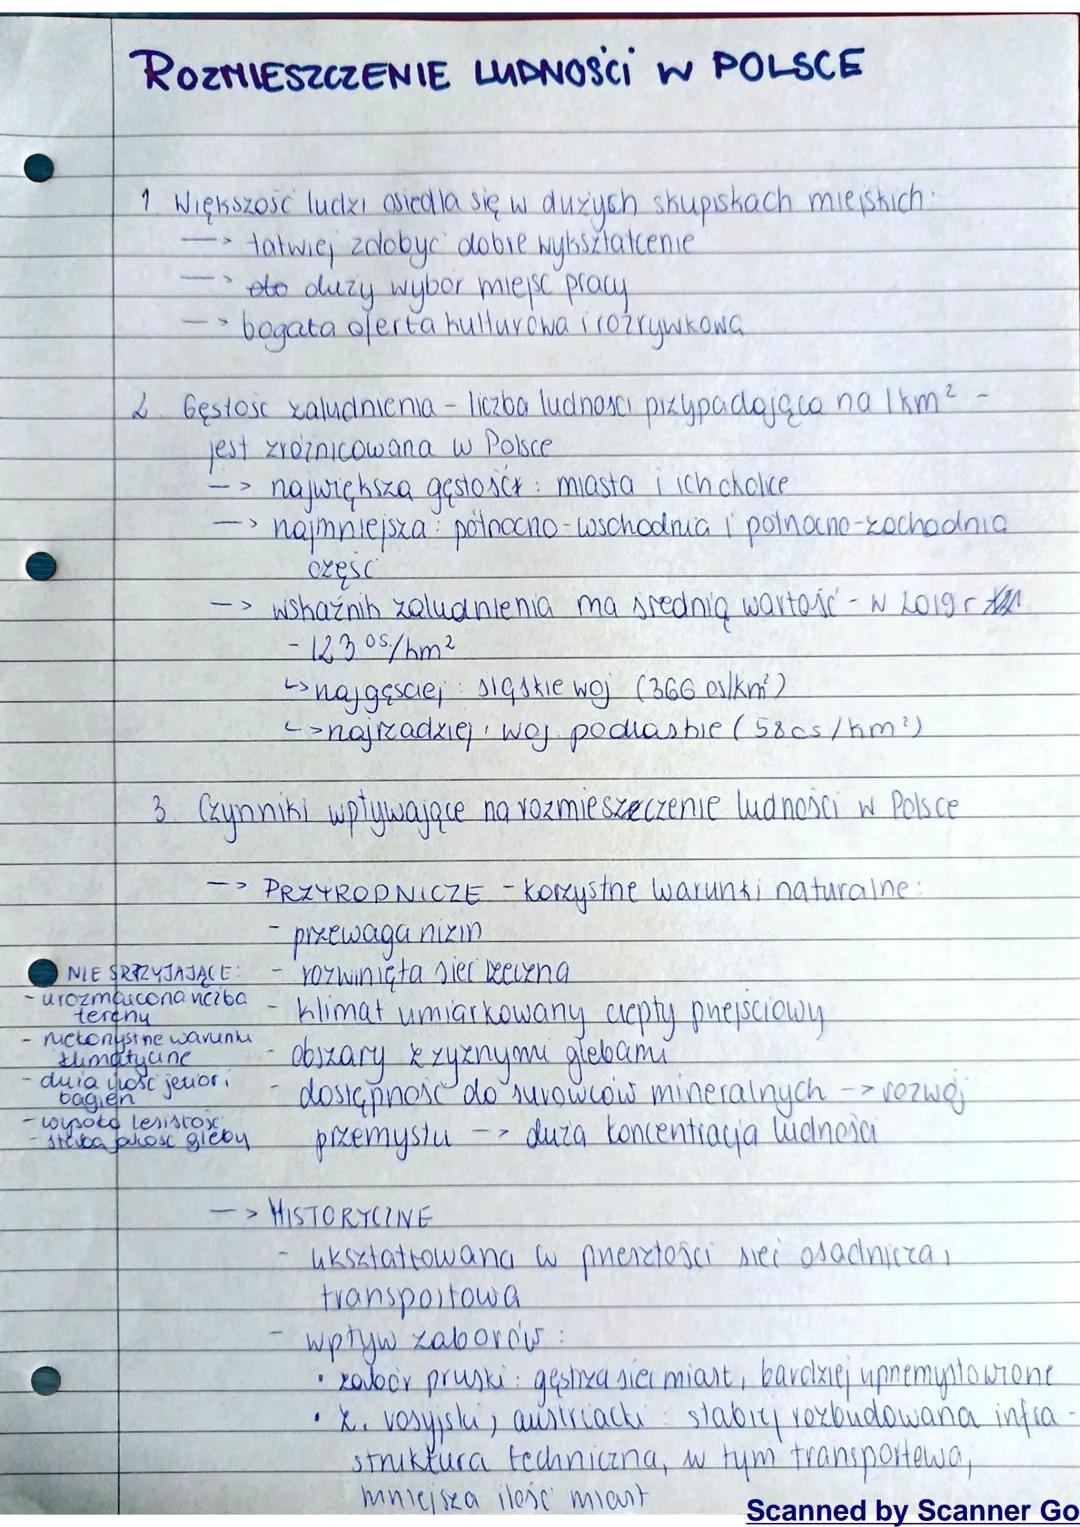 ROZMIESZCZENIE LUDNOŚCI W POLSCE
1. Większość ludzi osiedla się w dużych skupiskach miejskich:
—> łatwiej zdobyć dobre wykształcenie
—> duży wybór miejsc pracy
—> bogata oferta kulturowa i rozrywkowa
2. Gęstość zaludnienia - liczba ludności przypadająca na 1km² -
jest zróżnicowana w Polsce
—> największa gęstość: miasta i ich okolice
—> najmniejsza: północno-wschodnia i północno-zachodnia
część
—> wskaźnik zaludnienia ma średnią wartość - w 2019 r
- 123 os./km²
↳ najgęściej: śląskie woj (366 os/km²)
↳ najrzadziej: woj podlaskie (58os/km²)
3. Czynniki wpływające na rozmieszczenie ludności w Polsce
—> PRZYRODNICZE - korzystne warunki naturalne:
- przewaga nizin
- rozwinięta sieć rzeczna
- klimat umiarkowany ciepły przejściowy
- obszary z żyznymi glebami
- dostępność do surowców mineralnych —> rozwój
przemysłu —> duża koncentracja ludności
NIE SPRZYJAJĄCE:
- urozmaicona rzeźba
terenu
- niekorzystne warunki
klimatyczne
- duża ilość jezior i
bagien
- wysoka lesistość
- słaba jakość gleby
—> HISTORYCZNE
- ukształtowana w przeszłości sieć osadnicza,
transportowa
- wpływ zaborów:
• zabór pruski: gęstsza sieć miast, bardziej uprzemysłowione
• z. rosyjski, austriacki: słabiej rozbudowana infra-
struktura techniczna, w tym transportowa,
mniejsza ilość miast
Scanned by Scanner Go